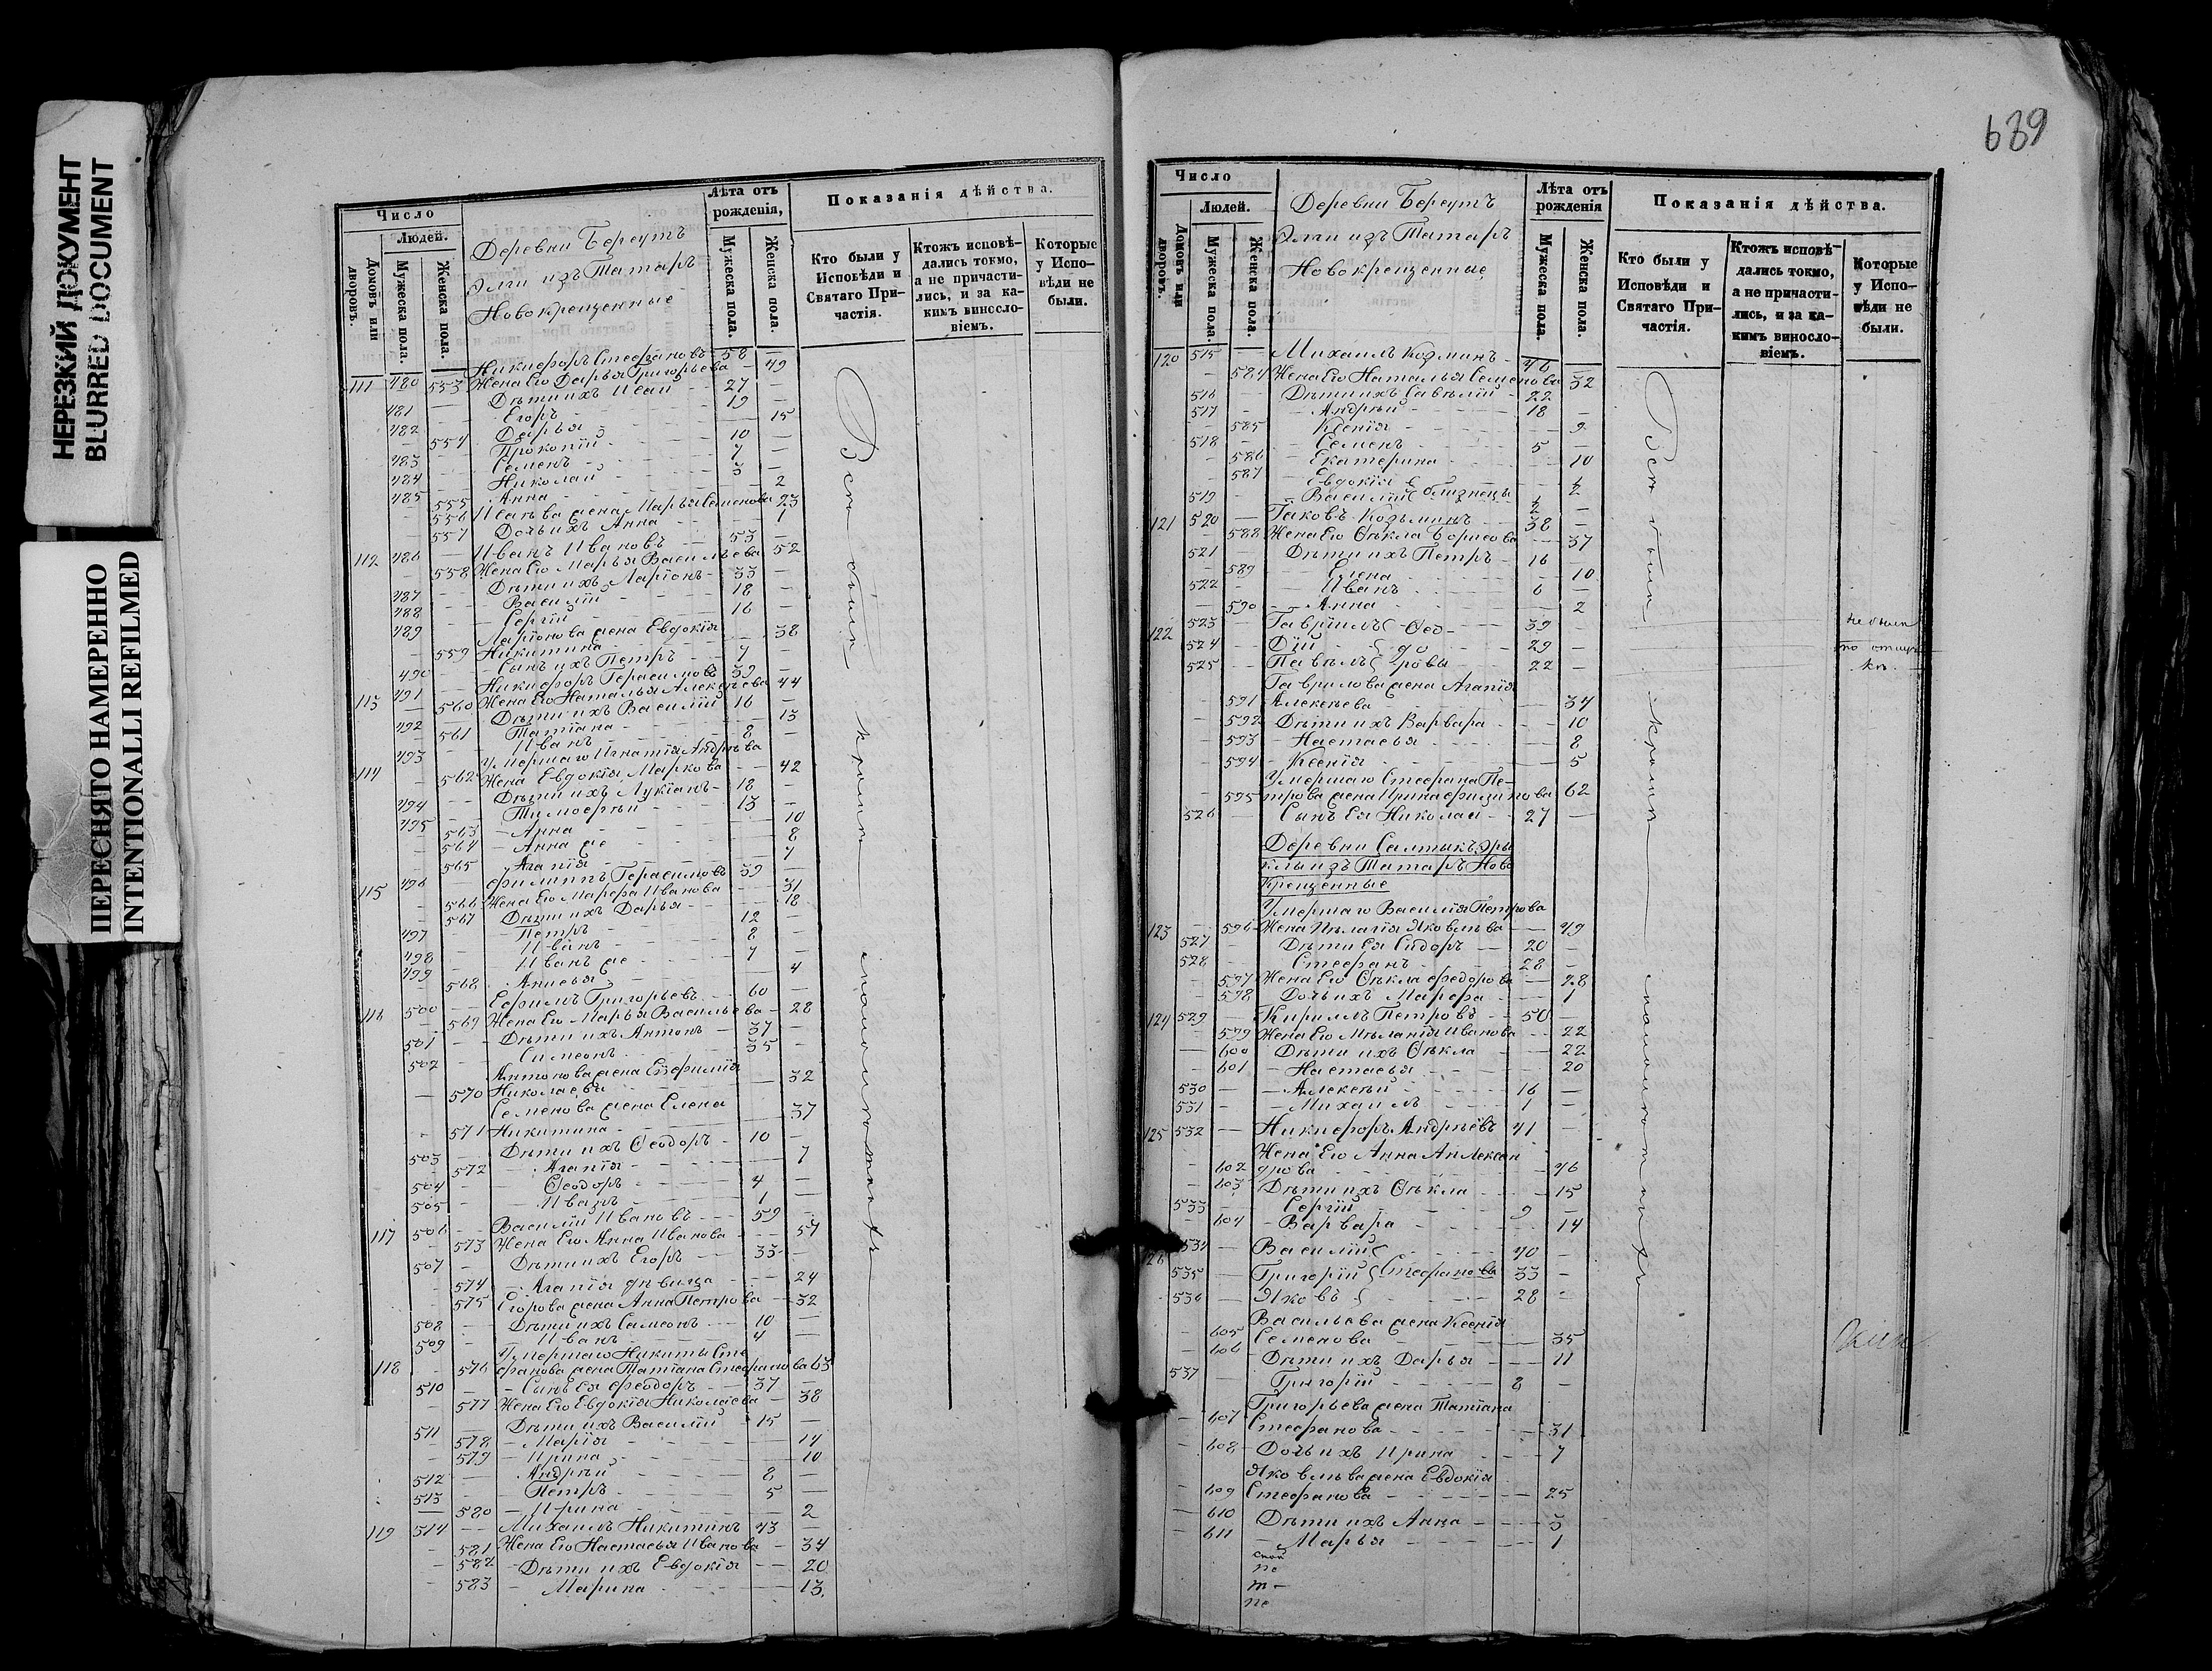 НЕРЕЗКИЙ ДОКУМЕНТ
BLURRED DOCUMENT
ПЕРЕСНЯТО НАМЕРЕННО
INTENTIONALLI REFILMED
Число
Людей.
Домовъ или дворовъ.
Мужеска пола.
Женска пола.
Деревни Береутъ
Элги изъ Татаръ
Новокрещенные
Лѣта отъ рожденія,
Мужеска пола.
Женска пола.
Показанія дѣйства.
Кто были у Исповѣди и Святаго Причастія.
Ктожъ исповѣ-
дались токмо,
а не причасти-
лись, и за ка-
кимъ виносло-
віемъ.
Которые
у Испо-
вѣди не
были.
Никифоръ Стефановъ 58
111 480 553 Жена Его Дарья Григорьева 49
Дѣти ихъ Исай 27
481 Егоръ 19
482 Дарья 15
554 Прокопій 10
483 Семенъ 7
484 Николай 3
485 Анна 2
555
556 жена Марья Семенова 23
557 Дочь ихъ Анна 1
112 486 Иванъ Ивановъ 53
558 Жена Его Марья Васильева 52
Дѣти ихъ Ларіонъ 33
487 Василій 18
488 Сергій 16
489 Ларіонова жена Евдокія 38
559 Никитина
490 Сынъ ихъ Петръ 7
Никифоръ Герасимовъ 39
113 491 560 Жена Его Наталья Алексѣева 44
Дѣти ихъ Василій 16
492 561 Татіана 13
493 Иванъ 8
Умершаго Игнатія Андрѣева
114 562 Жена Евдокія Маркова 42
Дѣти ихъ Лукіанъ 18
494 Тимофѣй 13
495 563 Анна 10
564 Анна же 8
565 Агапія 7
115 496 Филиппъ Герасимовъ 39
566 Жена Его Марфа Иванова 31
567 Дѣти ихъ Дарья 18
497 Петръ 12
498 Иванъ 8
499 Иванъ же 7
568 Анисья 4
116 500 Ефимъ Григорьевъ 60
569 Жена Его Марья Васильева 28
501 Дѣти ихъ Антонъ 37
502 Симеонъ 35
Антонова жена Евфимія
570 Николаева 32
Семенова жена Елена
571 Никитина 37
503 Дѣти ихъ Ѳеодоръ 10
572 Агапія 7
504 Ѳеодоръ 4
505 Иванъ 1
117 506 Василій Ивановъ 59
573 Жена Его Анна Иванова 57
507 Дѣти ихъ Егоръ 33
574 Агапія дѣвица 24
575 Егорова жена Анна Петрова 32
508 Дѣти ихъ Самсонъ 10
509 Иванъ 4
Умершаго Никиты Сте
118 576 фанова жена Татіана Стефанова 63
510 Сынъ Ея Феодоръ 37
577 Жена Его Евдокія Николаева 38
511 Дѣти ихъ Василій 15
578 Марія 14
579 Ирина 10
512 Андрѣй 8
513 Петръ 5
580 Ирина 2
119 514 Михаилъ Никитинъ 43
581 Жена Его Настасья Иванова 34
582 Дѣти ихъ Евдокія 20
583 Марина 13
Всѣ были кромѣ малолѣтнихъ
639
Число
Людей.
Домовъ или дворовъ.
Мужеска пола.
Женска пола.
Деревни Береутъ
Элги изъ Татаръ
Новокрещенные
Лѣта отъ рожденія
Мужеска пола.
Женска пола.
Показанія дѣйства.
Кто были у Исповѣди и Святаго Причастія.
Ктожъ исповѣ-
дались токмо,
а не причасти-
лись, и за ка-
кимъ виносло-
віемъ.
Которые
у Испо-
вѣди не
были.
120 515 Михаилъ Козминъ 46
584 Жена Его Наталья Семенова 32
516 Дѣти ихъ Савелій 22
517 Андрѣй 18
585 Ксенія 9
518 Семенъ 5
586 Екатерина 10
587 Евдокія
519 Василій близнецы
121 520 Іаковъ Козьминъ 38
588 Жена Его Ѳекла Борисова 37
521 Дѣти ихъ Петръ 16
589 Елена 10
522 Иванъ 6
590 Анна 2
122 523 Гавріилъ Ѳео- 39
524 до 29
525 Павелъ ровы 22
не были
по отлуч
кѣ.
Гаврилова жена Агапія
591 Алексѣева 34
592 Дѣти ихъ Варвара 10
593 Настасья 8
594 Ксенія 5
Умершаго Стефана Пе-
595 трова жена Ирина 62
526 Сынъ Ея Николай 27
Деревни Салтыкъ Эры
клы изъ Татаръ Ново
крещенные
Умершаго Василія Петрова
123 596 Жена Пелагія Яковлева 49
527 Дѣти Ея Сидоръ 20
528 Стефанъ 28
597 Жена Его Ѳекла Федорова 28
598 Дочь ихъ Марфа 1
124 529 Кирилъ Петровъ 50
599 Жена Его Меланія Иванова 22
600 Дѣти ихъ Ѳекла 22
601 Настасья 20
530 Алексѣй 16
531 Михаилъ 1
125 532 Никифоръ Андрѣевъ 41
Жена Его Анна Алексан
602 дрова 46
603 Дѣти ихъ Ѳекла 15
533 Сергій 9
604 Варвара 14
126 534 Василій 40
535 Григорій Стефановы 33
536 Яковъ 28
Васильева жена Ксенія
605 Семенова 35
606 Дѣти ихъ Дарья 11
537 Григорій 8
Григорьева жена Татіана
607 Стефанова 31
608 Дочь ихъ Ирина 7
Яковлева жена Евдокія
609 Стефанова 25
610 Дѣти ихъ Анна 3
611 Марья 1
Всѣ были кромѣ малолѣтнихъ